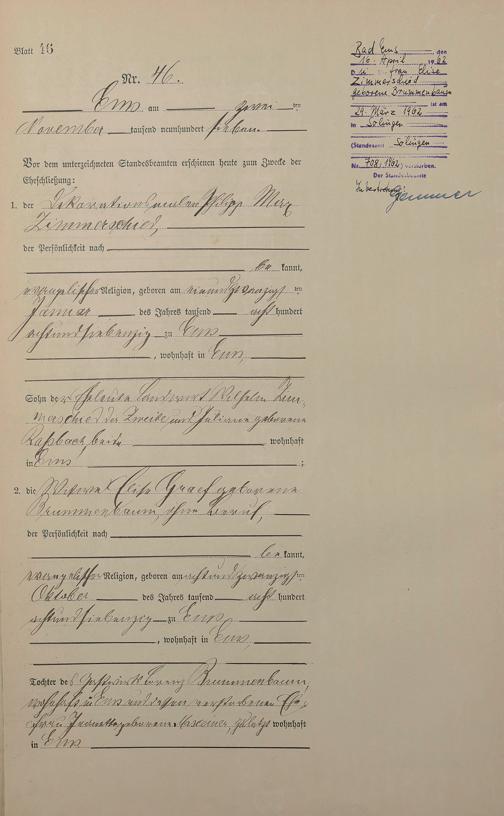 Blatt 46
Nr. 46.
Ems am zwei ten
November tausend neunhundert
Vor dem unterzeichneten Standesbeamten erschienen heute zum Zwecke der
Eheschließung:
1. der Dekorationsmaler Philipp Max
Zimmerschied,
der Persönlichkeit nach
be kannt,
evangelischer Religion, geboren am neunundzwanzigst ten
Januar des Jahres tausend acht hundert
achtundsiebenzig zu Ems
, wohnhaft in Ems,
Sohn der Eheleute Landwirt Wilhelm Zim-
merschied der Zweite und Juliane geborene
beide wohnhaft
in Ems ;
2. die Witwe Elise Graef geborene
Brummenbaum, ohne Beruf,
der Persönlichkeit nach
be kannt,
evangelischer Religion, geboren am achtundzwanzigst ten
Oktober des Jahres tausend acht hundert
achtundsiebenzig zu Ems
, wohnhaft in Ems,
Tochter des Gastwirts Lorenz Brummenbaum,
wohnhaft in Ems und dessen verstorbenen Ehe-
frau geborene zuletzt wohnhaft
in Ems
Bad Ems den
16. April 1962
Frau Elise
Zimmerschied
geborene Brummenbaum
ist am
29. März 1962
in Solingen
(Standesamt Solingen
Nr. 708/1962) verstorben.
Der Standesbeamte